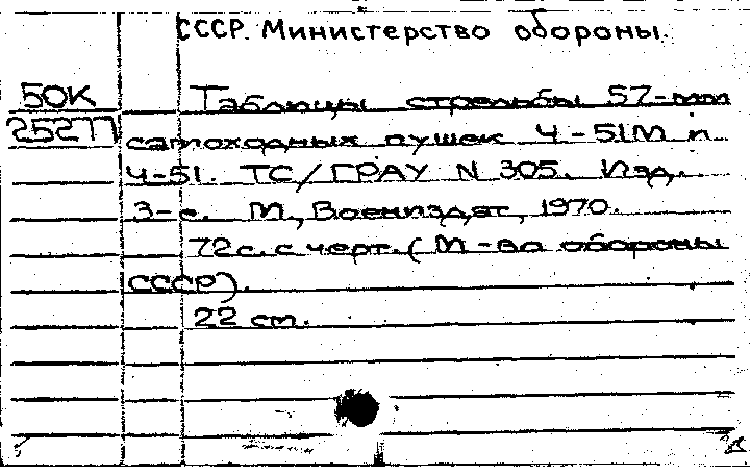 СССР. Министерство обороны.
50К Таблицы стрельбы 57-мм
25277 самоходных пушек Ч-51М и
Ч-51. ТС/ГРАУ N 305. Изд.
3-е. М., Воениздат, 1970.
72с. с черт. (М-во обороны
СССР).
22 см.